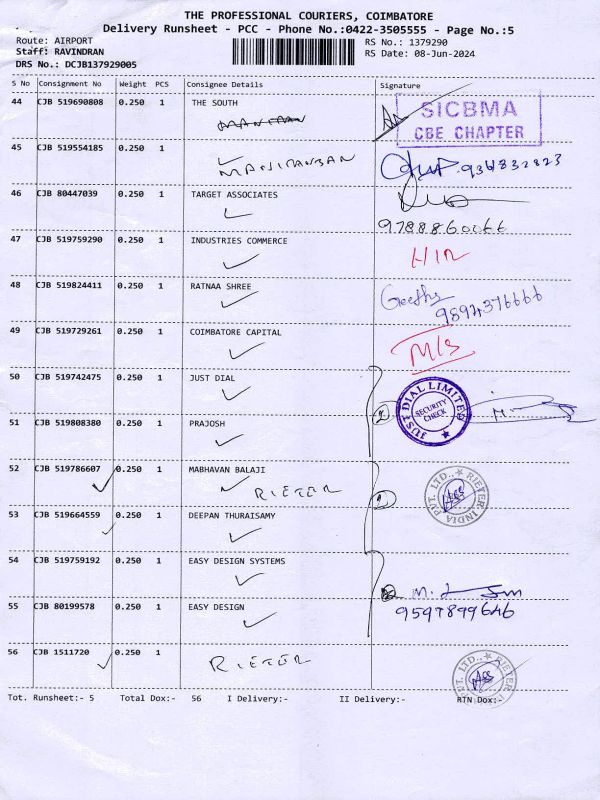 THE PROFESSIONAL COURIERS, COIMBATORE
Delivery Runsheet - PCC - Phone No.:0422-3505555 - Page No.:5
Route: AIRPORT
RS No.: 1379290
Staff: RAVINDRAN
RS Date: 08-Jun-2024
DRS No.: DCJB137929005
S No Consignment No Weight PCS Consignee Details Signature
44 CJB 519690808 0.250 1 THE SOUTH
SICBMA
CBE CHAPTER
45 CJB 519554185 1
46 CJB 80447039 0.250 1 TARGET ASSOCIATES
9788860066
47 CJB 519759290 0.250 1 INDUSTRIES COMMERCE
48 CJB 519824411 0.250 1 RATNAA SHREE
Geetha
9894376666
49 CJB 519729261 0.250 1 COIMBATORE CAPITAL
M/s
50 CJB 519742475 0.250 1 JUST DIAL
JUST DIAL LIMITED
SECURITY
CHECK
51 CJB 519808380 0.250 1 PRAJOSH
52 CJB 519786607 0.250 1 MABHAVAN BALAJI
RIETER
RIETER INDIA PVT. LTD.,
53 CJB 519664559 0.250 1 DEEPAN THURAISAMY
54 CJB 519759192 0.250 1 EASY DESIGN SYSTEMS
55 CJB 80199578 0.250 1 EASY DESIGN
9597899646
56 CJB 1511720 0.250 1
RIETER
PVT. LTD., RIETER
Tot. Runsheet:- 5 Total Dox:- 56 I Delivery:- II Delivery:- RTN Dox:-